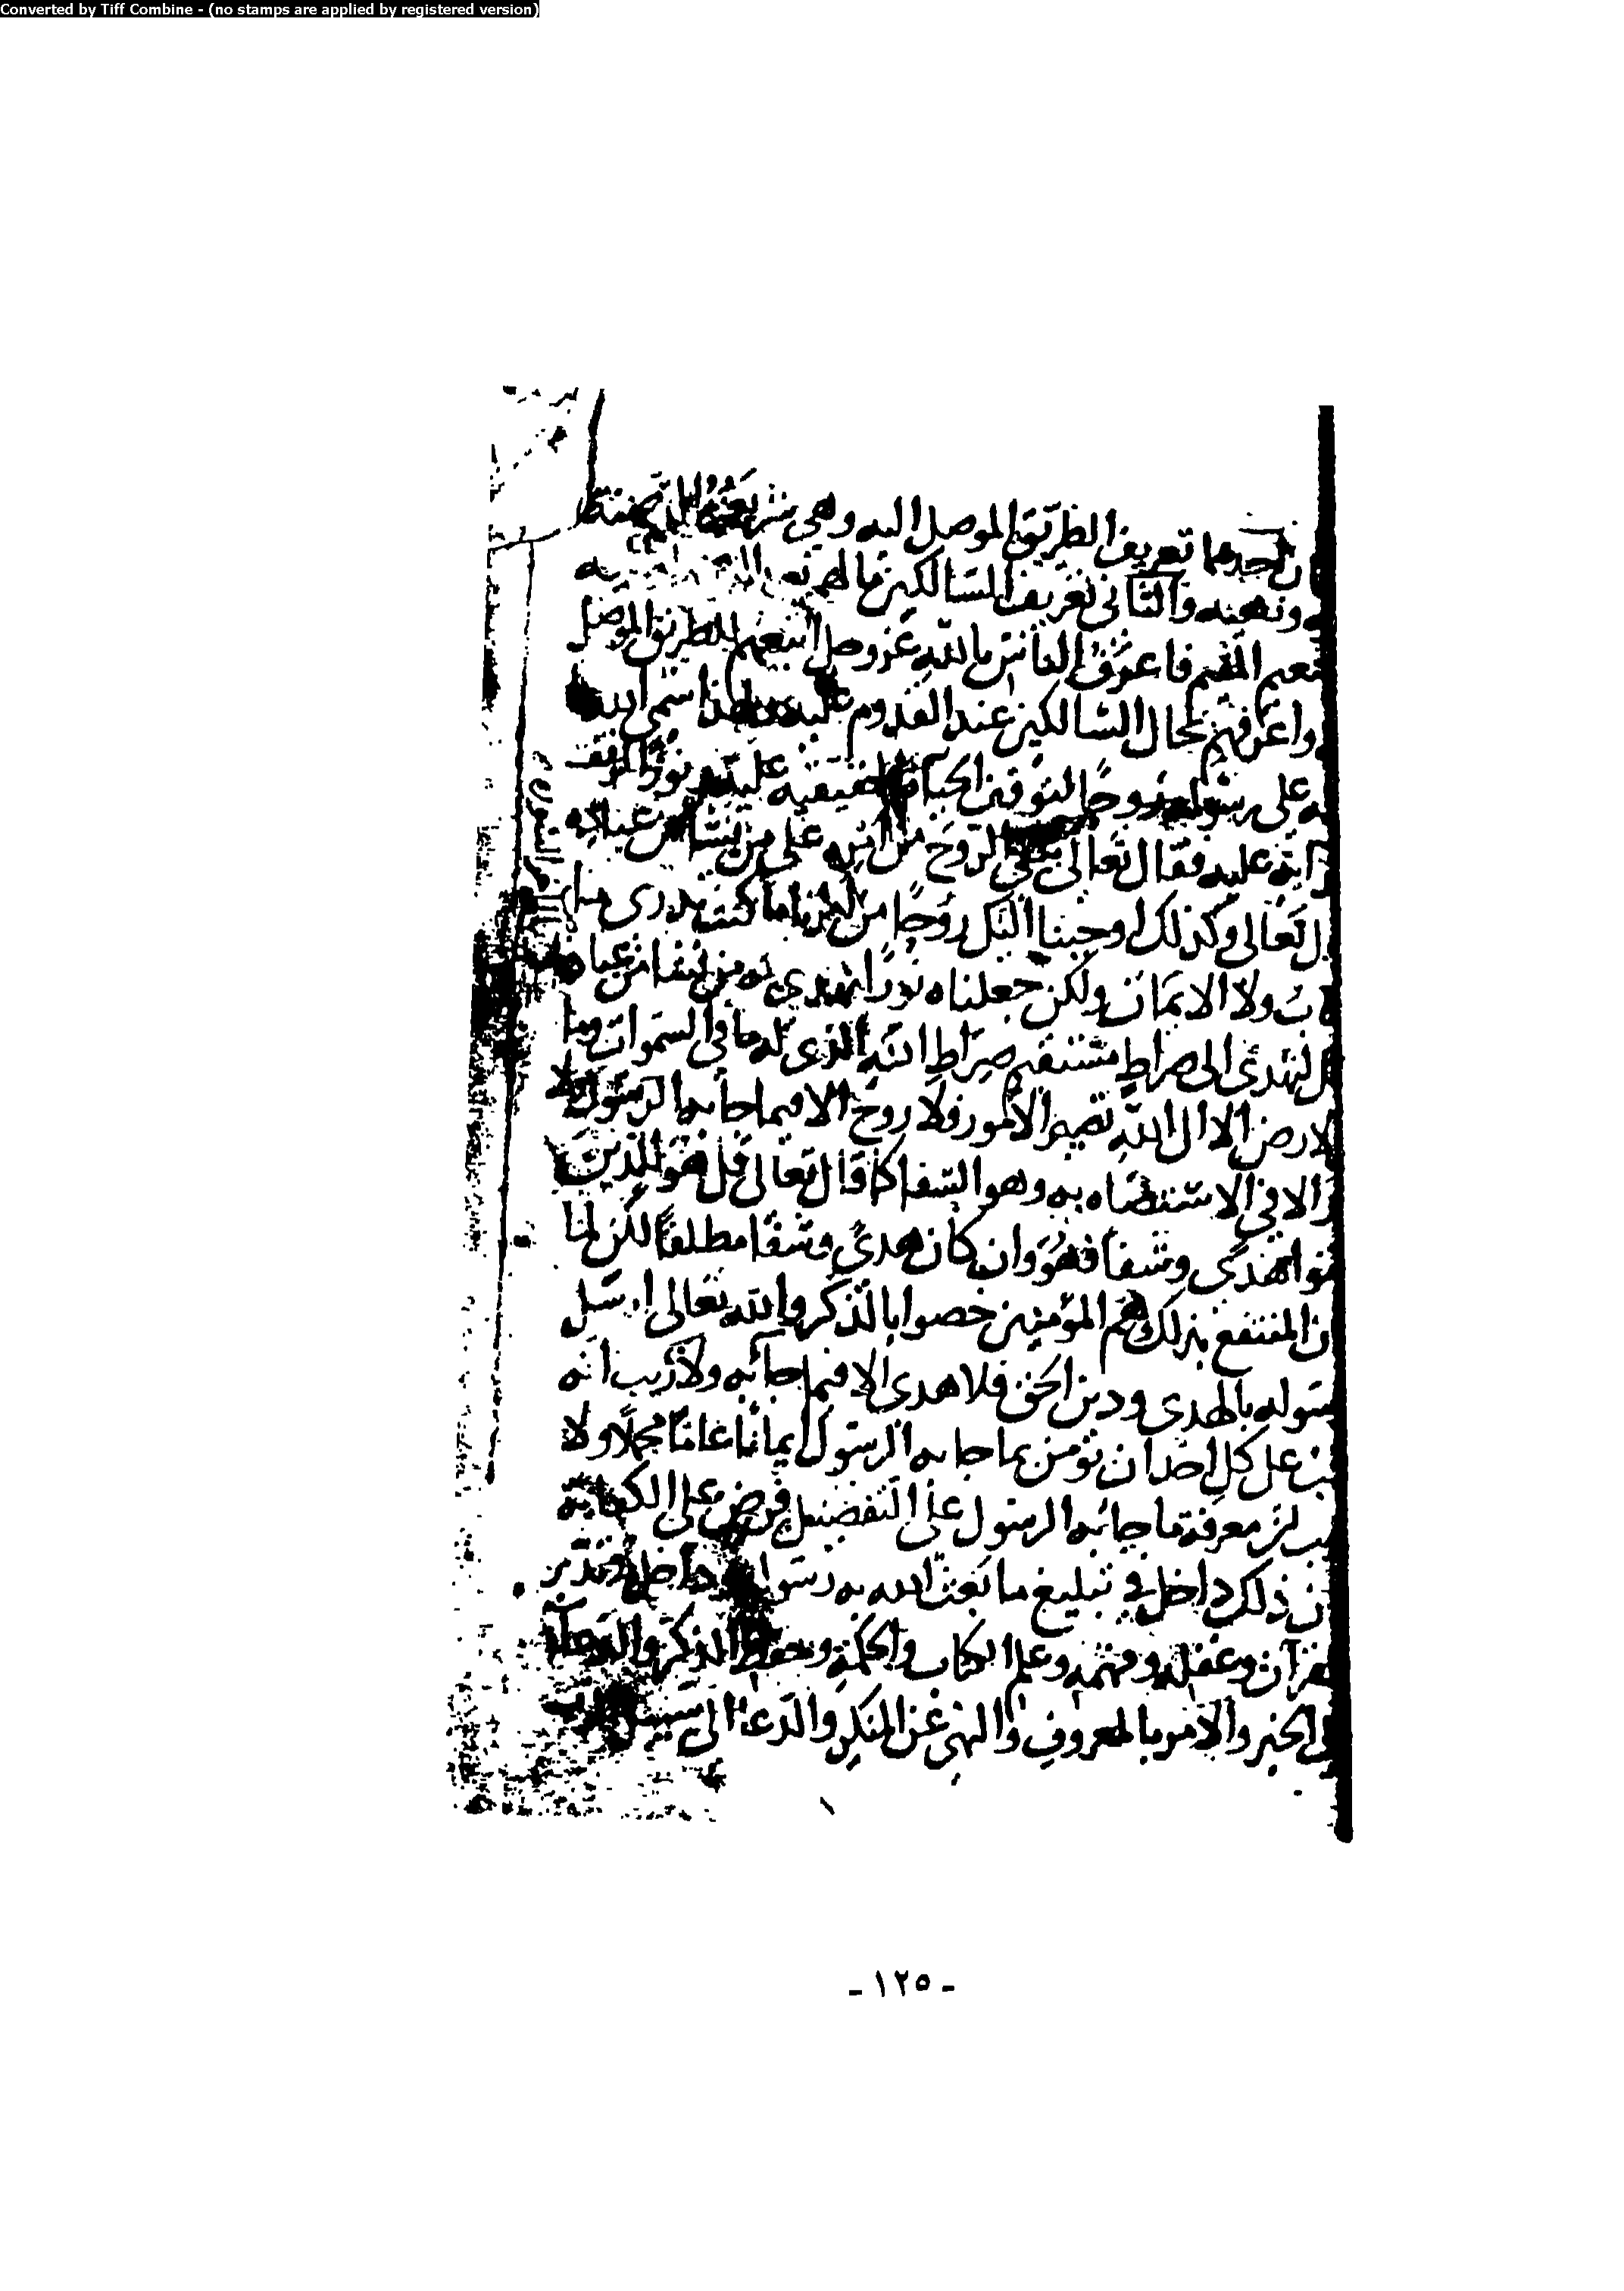 Converted by Tiff Combine - (no stamps are applied by registered version)
ن احدهما تعريف الطريق الموصل اليه وهى شريعته المتضمنة
ونهيه والثانى تعريف السالكين ما لهم بعد
نعيم المقيم فاعرف الناس بالله عز وجل اتبعهم للطريق الموصل
واعرفهم بحال السالكين عند القدوم عليه ولهذا سمى الله
على رسوله روحا لتوقف الحياة الحقيقية عليه ونورا لتوقف
اية عليه فقال تعالى يلقى الروح من امره على من يشا من عباده
ل تعالى وكذلك اوحينا اليك روحا من امرنا ما كنت تدرى ما
ب ولا الايمان ولكن جعلناه نورا نهدى به من نشا من عبادنا
لتهدى الى صراط مستقيم صراط الله الذى له ما فى السموات وما
لارض الا الى الله تصير الامور فلا روح الا فيما جا به الرسول ولا
ر الا فى الاستضاه به وهو الشفا كما قال تعالى قل هو للذين
منوا هدى وشفا فهو وان كان هدى وشفا مطلقا لكن لما
ن المنتفع بذلك هم المؤمنين خصوا بالذكر والله تعالى ارسل
سوله بالهدى ودين الحق فلا هدى الا فيما جا به ولا ريب انه
جب على كل احد ان يؤمن بما جا به الرسول ايمانا عاما مجملا ولا
معرفة ما جا به الرسول على التفصيل فرض على الكفاية
ن ذلك داخل فى تبليغ ما بعث الله به رسوله وداخل فى تدبر
لقرآن وعقله وفهمه وعلم الكتاب والحكمة وحفظ الذكر والدعا
لى الخير والامر بالمعروف والنهى عن المنكر والدعا الى سبيل
- ١٢٥ -